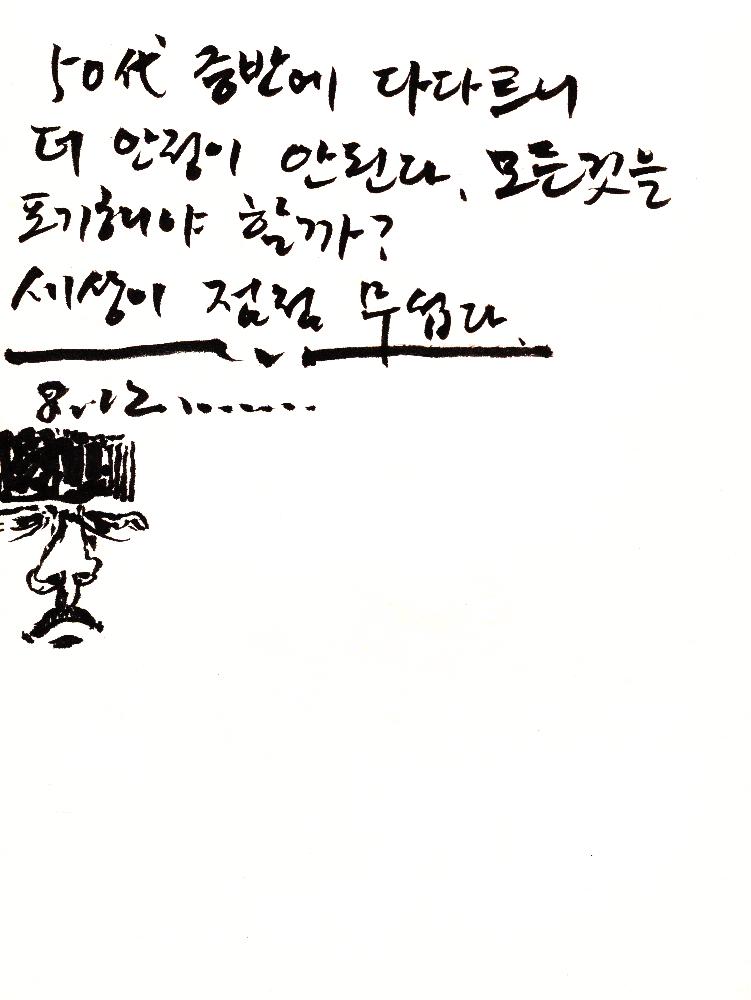 50代 중반에 다다르니
더 안정이 안된다. 모든것을
포기해야 할까?
세상이 점점 무섭다.
8.12.........